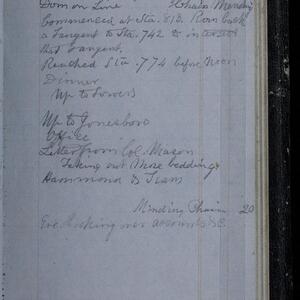 Dom on Line Chain Mending
Commenced at Sta. 813. Ran back
a Tangent to Sta. 742 to intersect
that tangent.
Reached Sta. 774 before Noon
Dinner
Up to Lowers
Up to Jonesboro
Office
Letter from Col. Mason
Taking out More bedding
Hammond & Team
Mending Chain 20
Eve. Looking over accounts &c